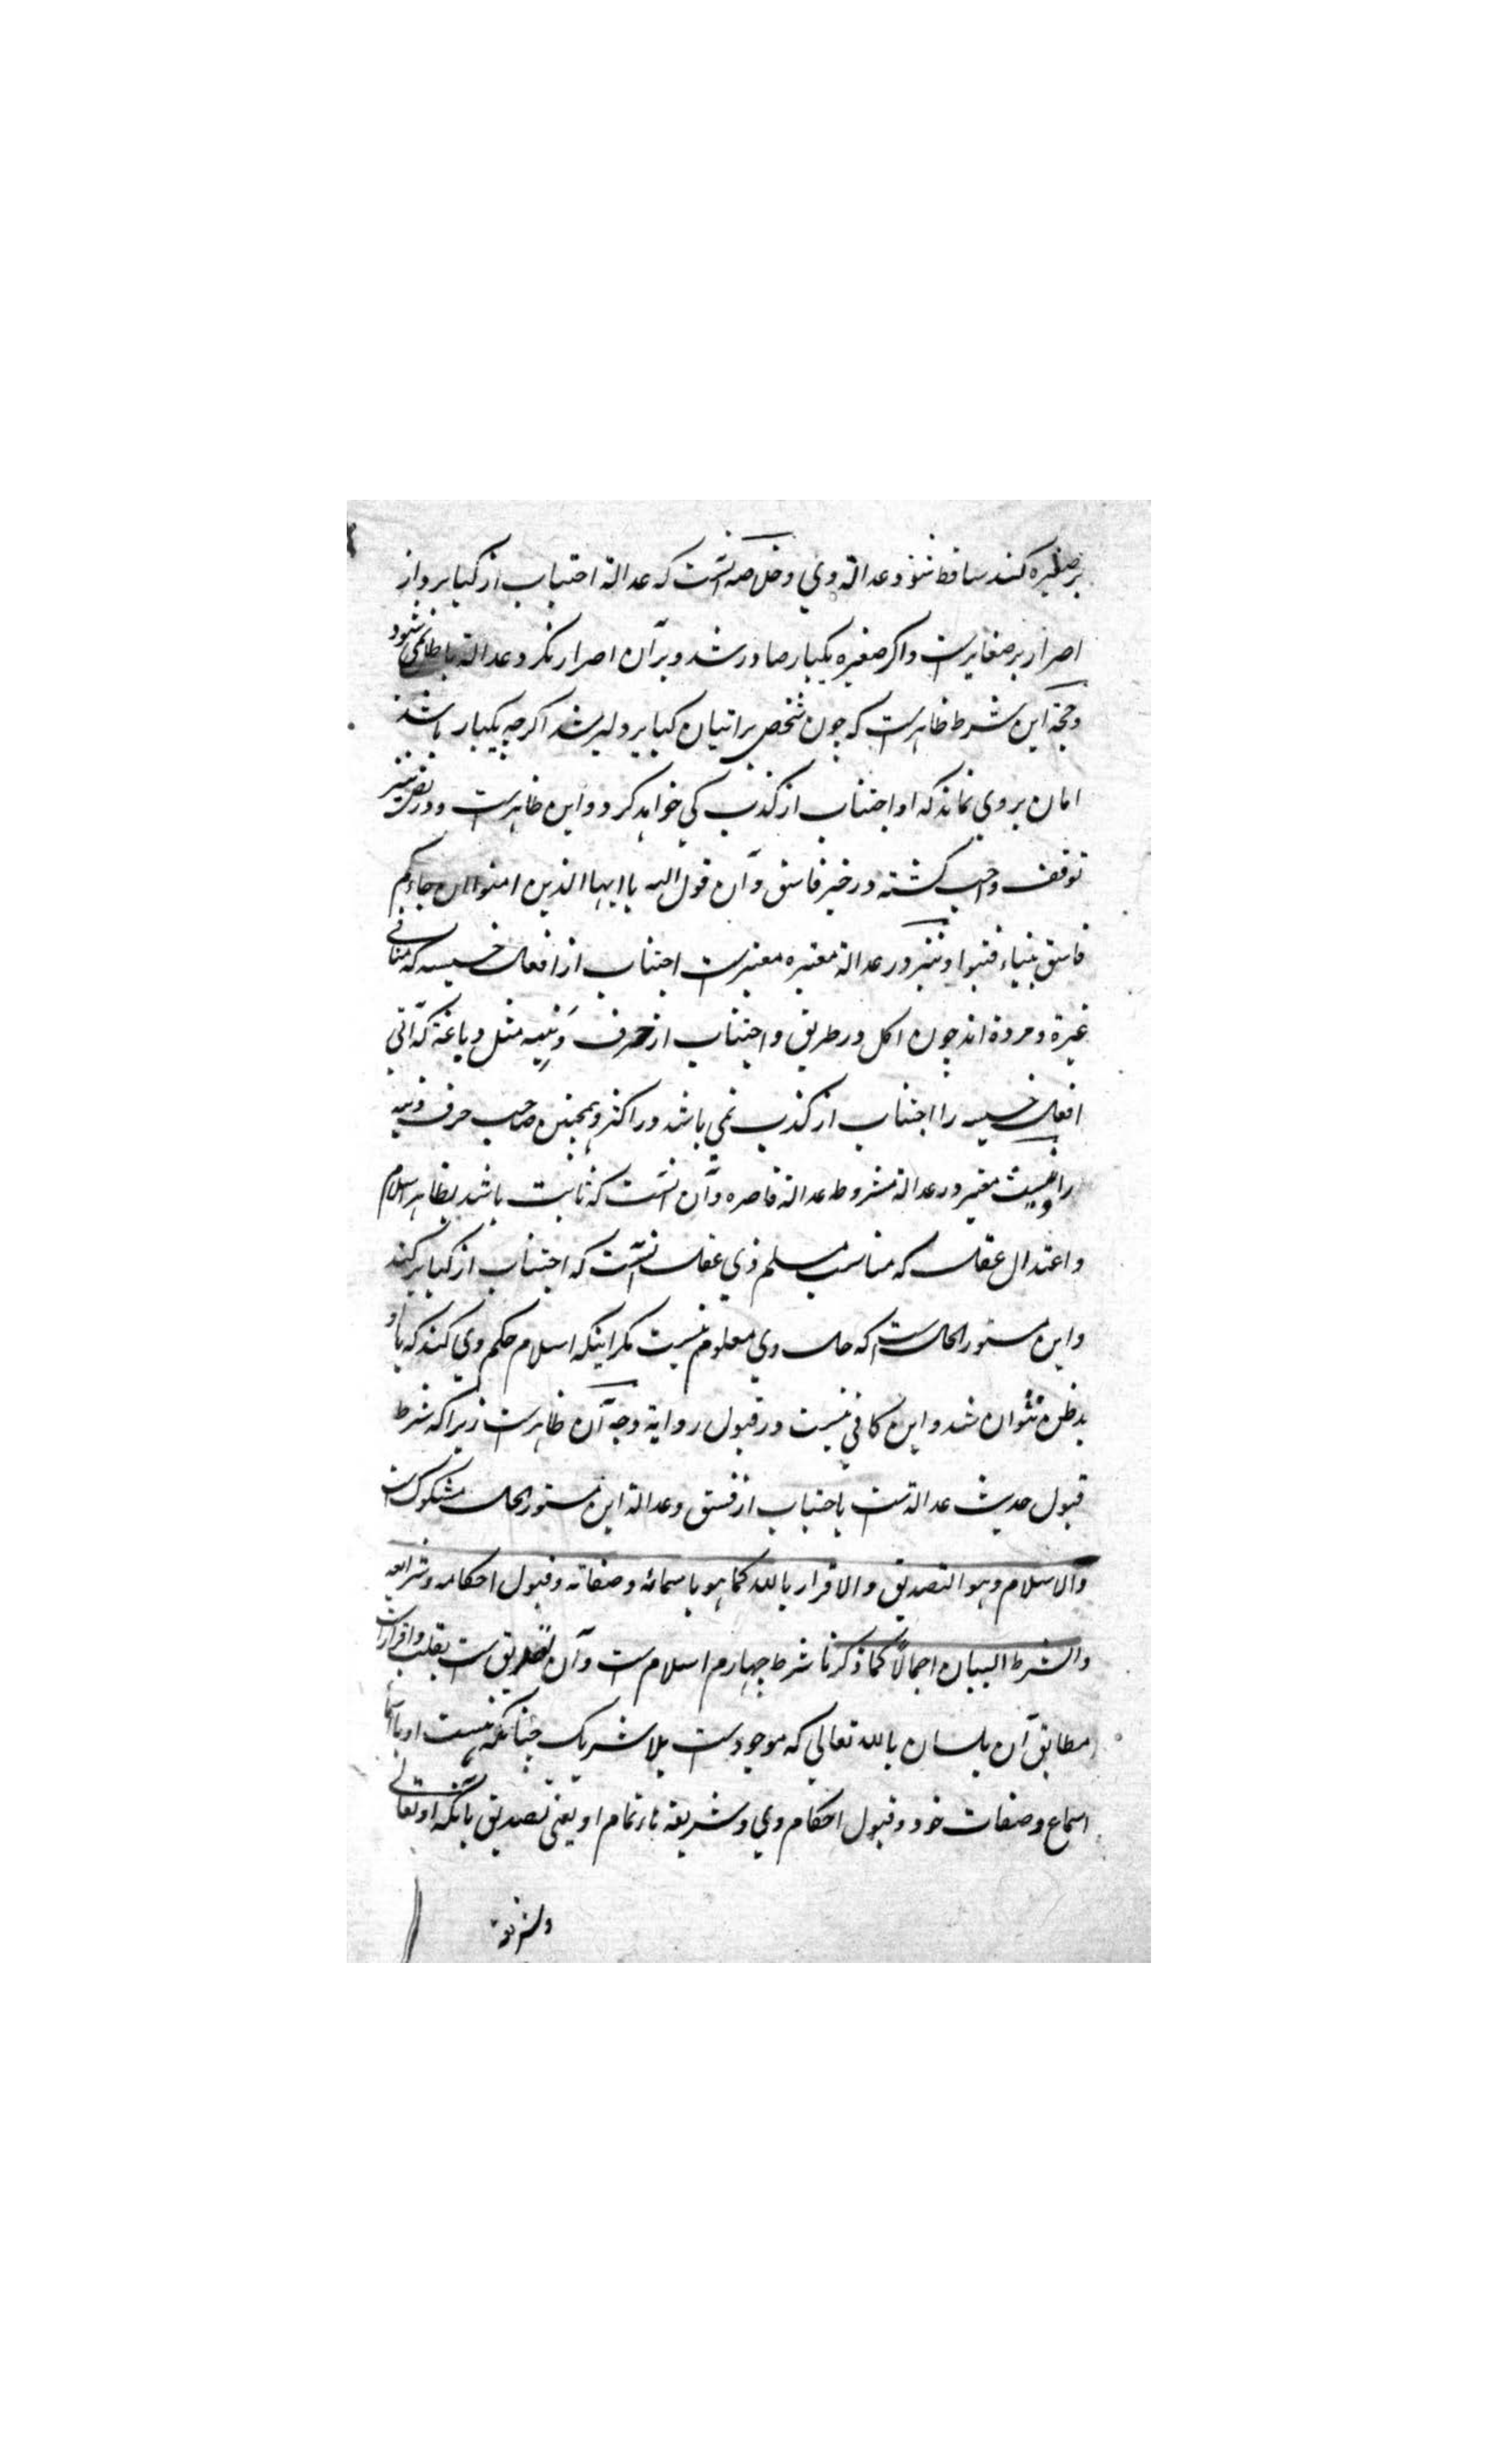 بر صغیره کند ساقط شود عدالة وی و خلاصه آنست که عدالة اجتناب از کبایر و از
اصرار بر صغایرست و اکر صغیره یکبار صادر شد و بر آن اصرار نکرد عدالة باطل نمی شود
و حجة این شرط ظاهرست که چون شخص بر اتیان کبایر دلیر شد اکرچه یکبار باشد
امان بر وی نماند که او اجتناب از کذب کی خواهد کرد و این ظاهرست و در نص نیز
توقف واجب کشته در خبر فاسق و آن قول اله یا ایها الذین امنوا ان جاءکم
فاسق بنباء فتبینوا و نیز در عدالة معتبره معتبرست اجتناب از افعال خسیسه که منافی
غیرة و مروة اند چون اکل در طریق و اجتناب از حرف دنیه مثل دباغة که آتی
افعال خسیسه را اجتناب از کذب نمی باشد در اکثر و همچنین صاحب حرف دنیه
را و نیست معتبر در عدالة مشروطه عدالة قاصره و آن آنست که ثابت باشد بظاهر اسلام
و اعتدال عقل که مناسب مسلم ذی عقل آنست که اجتناب از کبایر کند
و این مستور الحال ست که حال وی معلوم نیست مکر اینکه اسلام حکم وی کند که با و
بدظن نتوان شد و این کافی نیست در قبول روایة وجه آن ظاهرست زیرا که شرط
قبول حدیث عدالة ست باجتناب از فسق و عدالة این مستور الحال مشکوک ست
والاسلام وهو التصدیق والاقرار بالله کما هو باسمائه وصفاته وقبول احکامه وشرایعه
والشرط البیان اجمالاً کما ذکرنا شرط چهارم اسلام ست و آن تصدیق ست بقلب و اقرارست
مطابق آن بلسان بالله تعالی که موجودست بلا شریک چنانکه هست او با
اسماء و صفات خود و قبول احکام وی و شریعة تمام او یعنی تصدیق بآنکه او تعالی